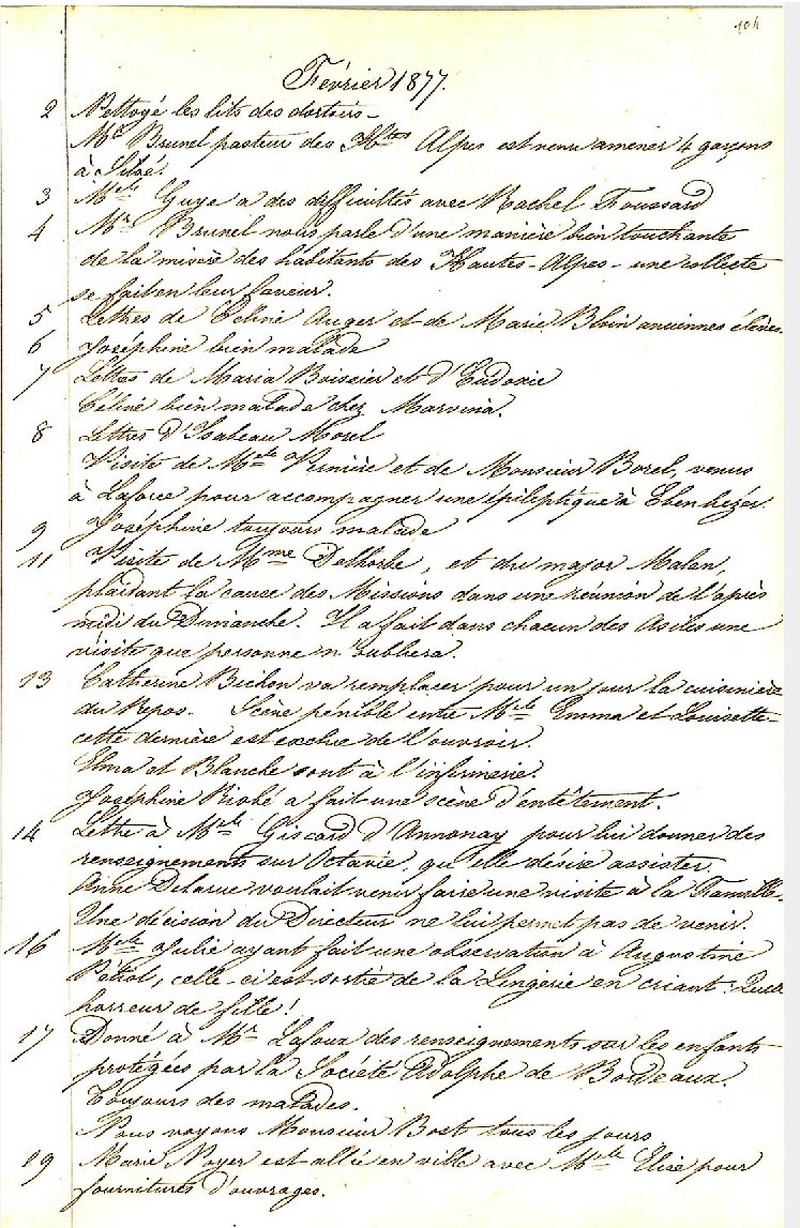 104
Février 1877.
2 Nettoyé les lits des dortoirs -
Mr Brunel pasteur des Htes Alpes est venu amener 4 garçons
à Siloé.
3 Melle Guye a des difficultés avec Rachel Foussard
4 Mr Brunel nous parle d'une manière bien touchante
de la misère des habitants des Hautes-Alpes - une collecte
se fait en leur faveur.
5 Lettres de Céline Auger et de Marie Bloin anciennes élèves.
6 Joséphine bien malade
7 Lettres de Maria Boissier et d'Eudoxie
Céline bien malade chez Marvina.
8 Lettres d'Isabeau Morel
Visite de Melle Vernière et de Monsieur Borel, venus
à Laforce pour accompagner une épileptique à Ebenhézer.
9 Joséphine toujours malade
11 Visite de Mme Delhorbe, et du major Malan,
plaidant la cause des Missions dans une réunion de l'après
midi du Dimanche. Il a fait dans chacun des Asiles une
visite que personne n'oubliera.
13 Catherine Bichon va remplacer pour un jour la cuisinière
du Repos. Scène pénible entre Melle Emma et Louisette -
cette dernière est exclue de l'ouvroir.
Elma et Blanche sont à l'infirmerie.
Joséphine Riobé a fait une scène d'entêtement.
14 Lettre à Melle Giscard d'Annonay pour lui donner des
renseignements sur Octavie, qu'elle désire assister.
Anne Delarue voulait venir faire une visite à la Famille.
Une décision du Directeur ne lui permet pas de venir.
16 Melle Julie ayant fait une observation à Augustine
Pétiot, celle-ci est sortie de la Lingerie en criant : Quelle
horreur de fille !
17 Donné à Mr Lafoux des renseignements sur les enfants
protégées par la Société Adolphe de Bordeaux.
Toujours des malades.
Nous voyons Monsieur Bost tous les jours
19 Marie Noyer est allée en ville avec Melle Elise pour
fournitures d'ouvrages.